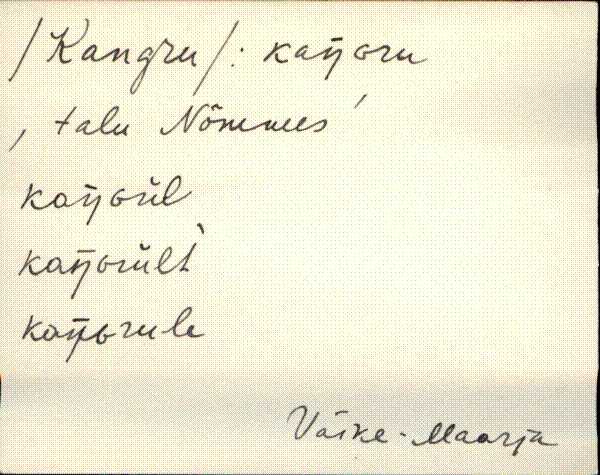 /Kangru/: kaŋɢru
, talu Nõmmes ’
kaŋɢrŭl
kaŋɢrŭlt̀
kaŋɢrule
Väike-Maarja